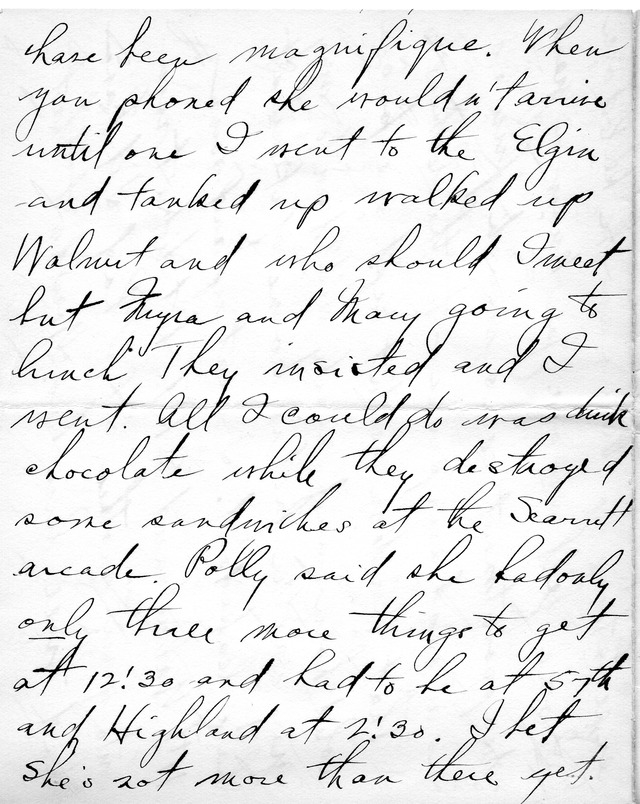 have been magnifique. When
you phoned she wouldn't arrive
until one I went to the Elgin
and tanked up walked up
Walnut and who should I meet
but Myra and Mary going to
lunch. They insisted and I
went. All I could do was drink
chocolate while they destroyed
some sandwiches at the Scarritt
arcade. Polly said she had only
only three more things to get
at 12:30 and had to be at 57th
and Highland at 2:30. I bet
she's not more than there yet.